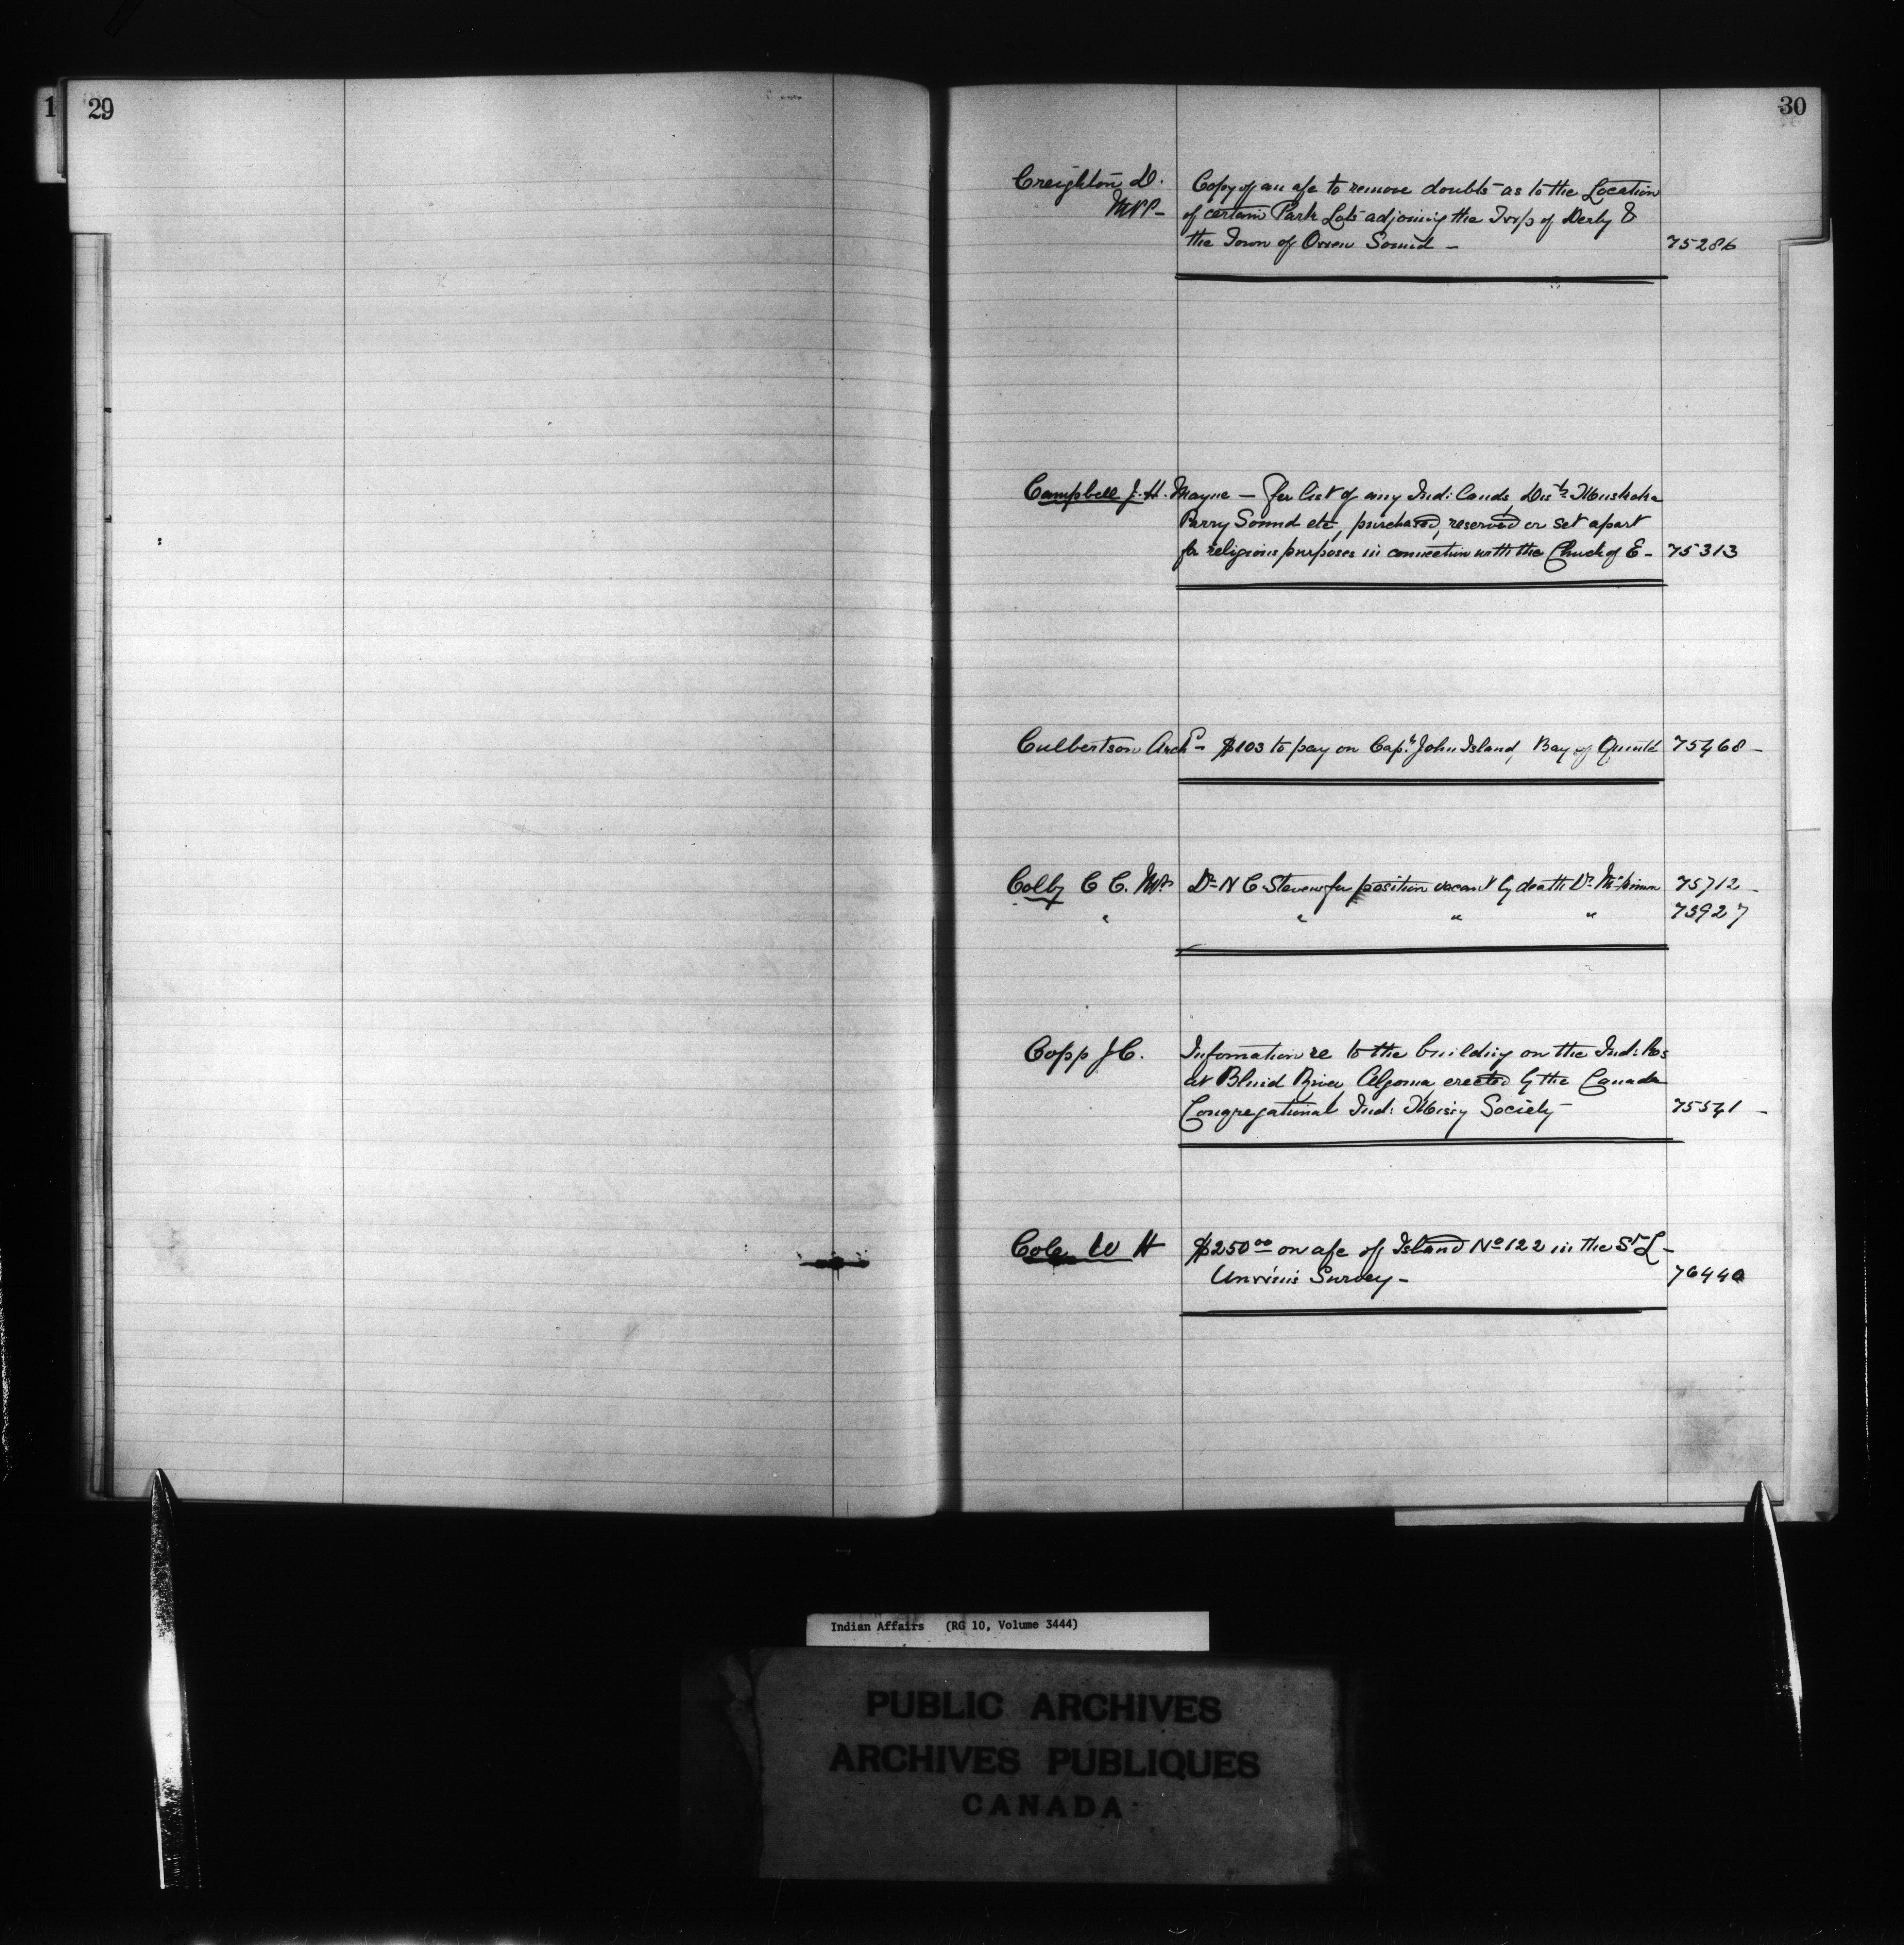 1
29
30
Creighton D. Copy of an a/c to remove doubts as to the Location
M.P.P. - of certain Park Lots adjoining the Twp of Derby &
the Town of Owen Sound - 75286
Campbell J. H. Mayne - for list of any Ind: Lands Dists Muskoka
Parry Sound etc, purchased, reserved or set apart
for religious purposes in connection with the Church of E - 75313
Culbertson Archd - $103 to pay on Capt John Island, Bay of Quinté 75468 -
Colby C C. MP. Dr N C Stevens for position vacant by death Dr 75712 -
" " " " 75927
Copp J C. Information re to the building on the Ind: Res
at Blind River Algoma erected by the Canada
Congregational Ind: Missy Society - 75541 -
Cole W H $250 00 on a/c of Island No 122 in the St L -
Unwin's Survey - 76440
Indian Affairs (RG 10, Volume 3444)
PUBLIC ARCHIVES
ARCHIVES PUBLIQUES
CANADA